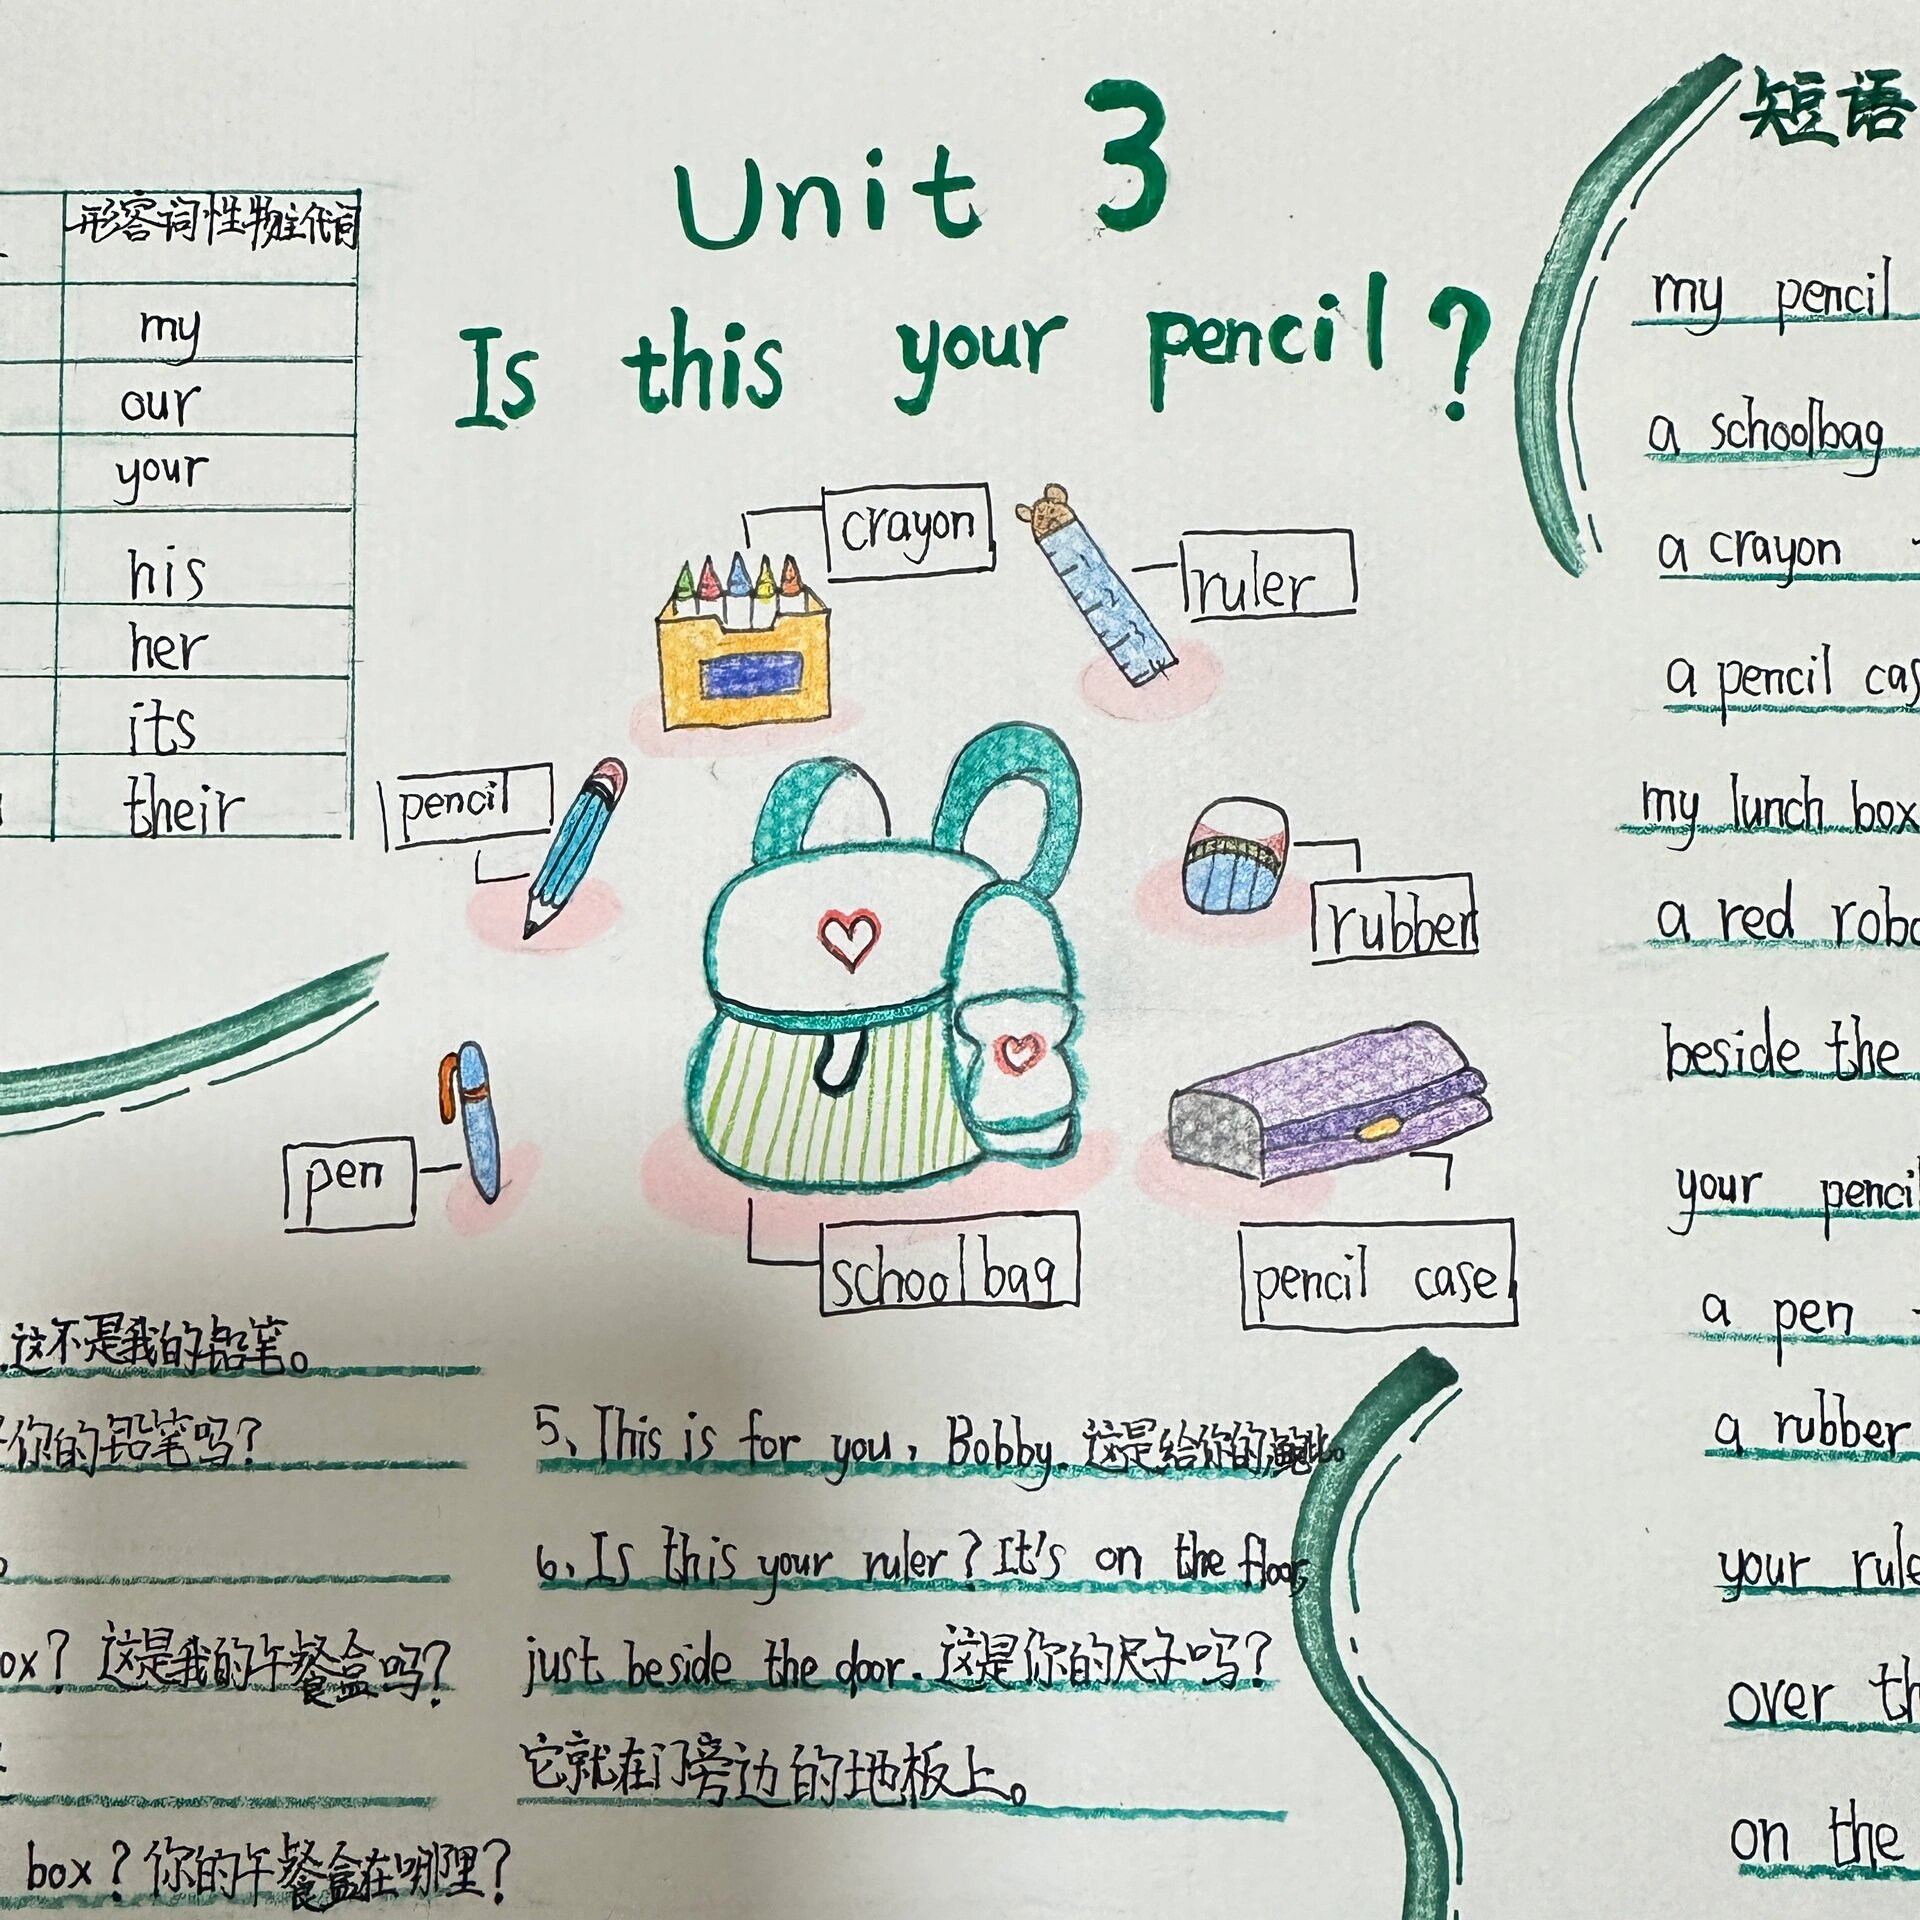 Unit 3
Is this your pencil?
形容词性物主代词
my
our
your
his
her
its
their
crayon
ruler
pencil
rubber
pen
schoolbag
pencil case
这不是我的铅笔。
你的铅笔吗?
ox? 这是我的午餐盒吗?
box? 你的午餐盒在哪里?
5、This is for you, Bobby. 这是给你的
6、Is this your ruler? It's on the floor,
just beside the door. 这是你的尺子吗?
它就在门旁边的地板上。
短语
my pencil
a schoolbag
a crayon
a pencil cas
my lunch box
a red robo
beside the
your pencil
a pen
a rubber
your rule
over th
on the